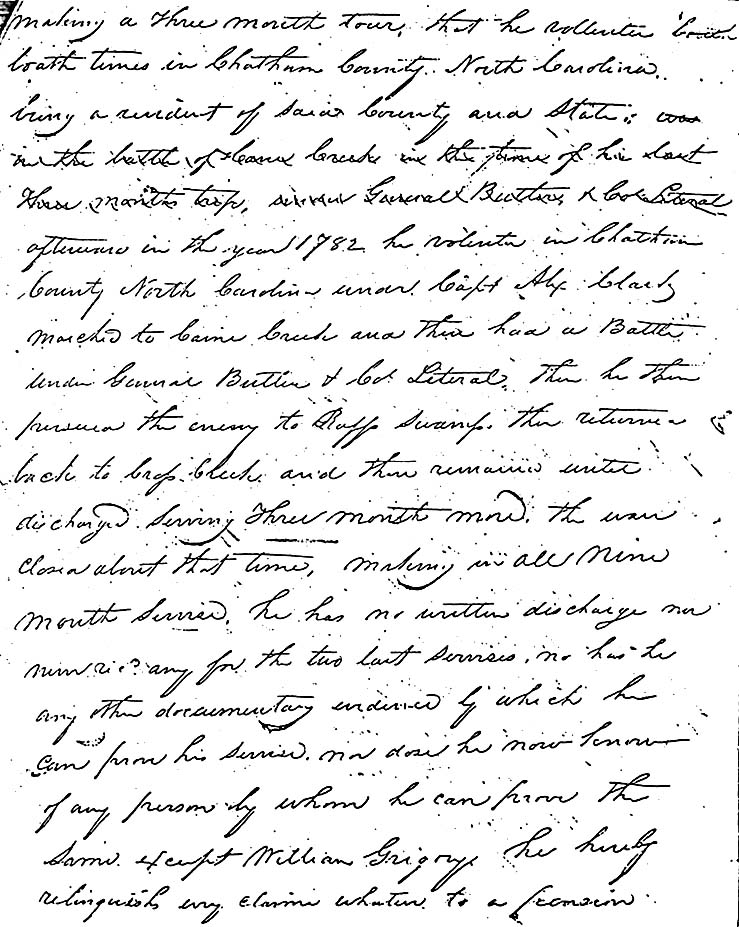 making a three month tour, that he vollenterd
boath times in Chatham County North Carolina.
being a resident of said County and State; was
in the battle of Cane Creek in the time of his last
three months trip, under Generall Buttler & Col Literal
afterward in the year 1782 he volenterd in Chatham
County North Carolina under Capt Alx Clark
marched to Caine Creek and there had a Battle
under General Butler & Col Literal, then he then
persued the enemy to Raff Swamp. then returned
back to Cross Creek and then remained untill
discharged serving Three month more, the war
closed about that time, making in all Nine
month servise. he has no written discharge nor
never recd any for the two last servises, no has he
any other documentary evidence by which he
can prove his servise. nor dose he now know
of any person by whom he can prove the
same. except William Grigory he hereby
relinquish evry claim whatever to a pension